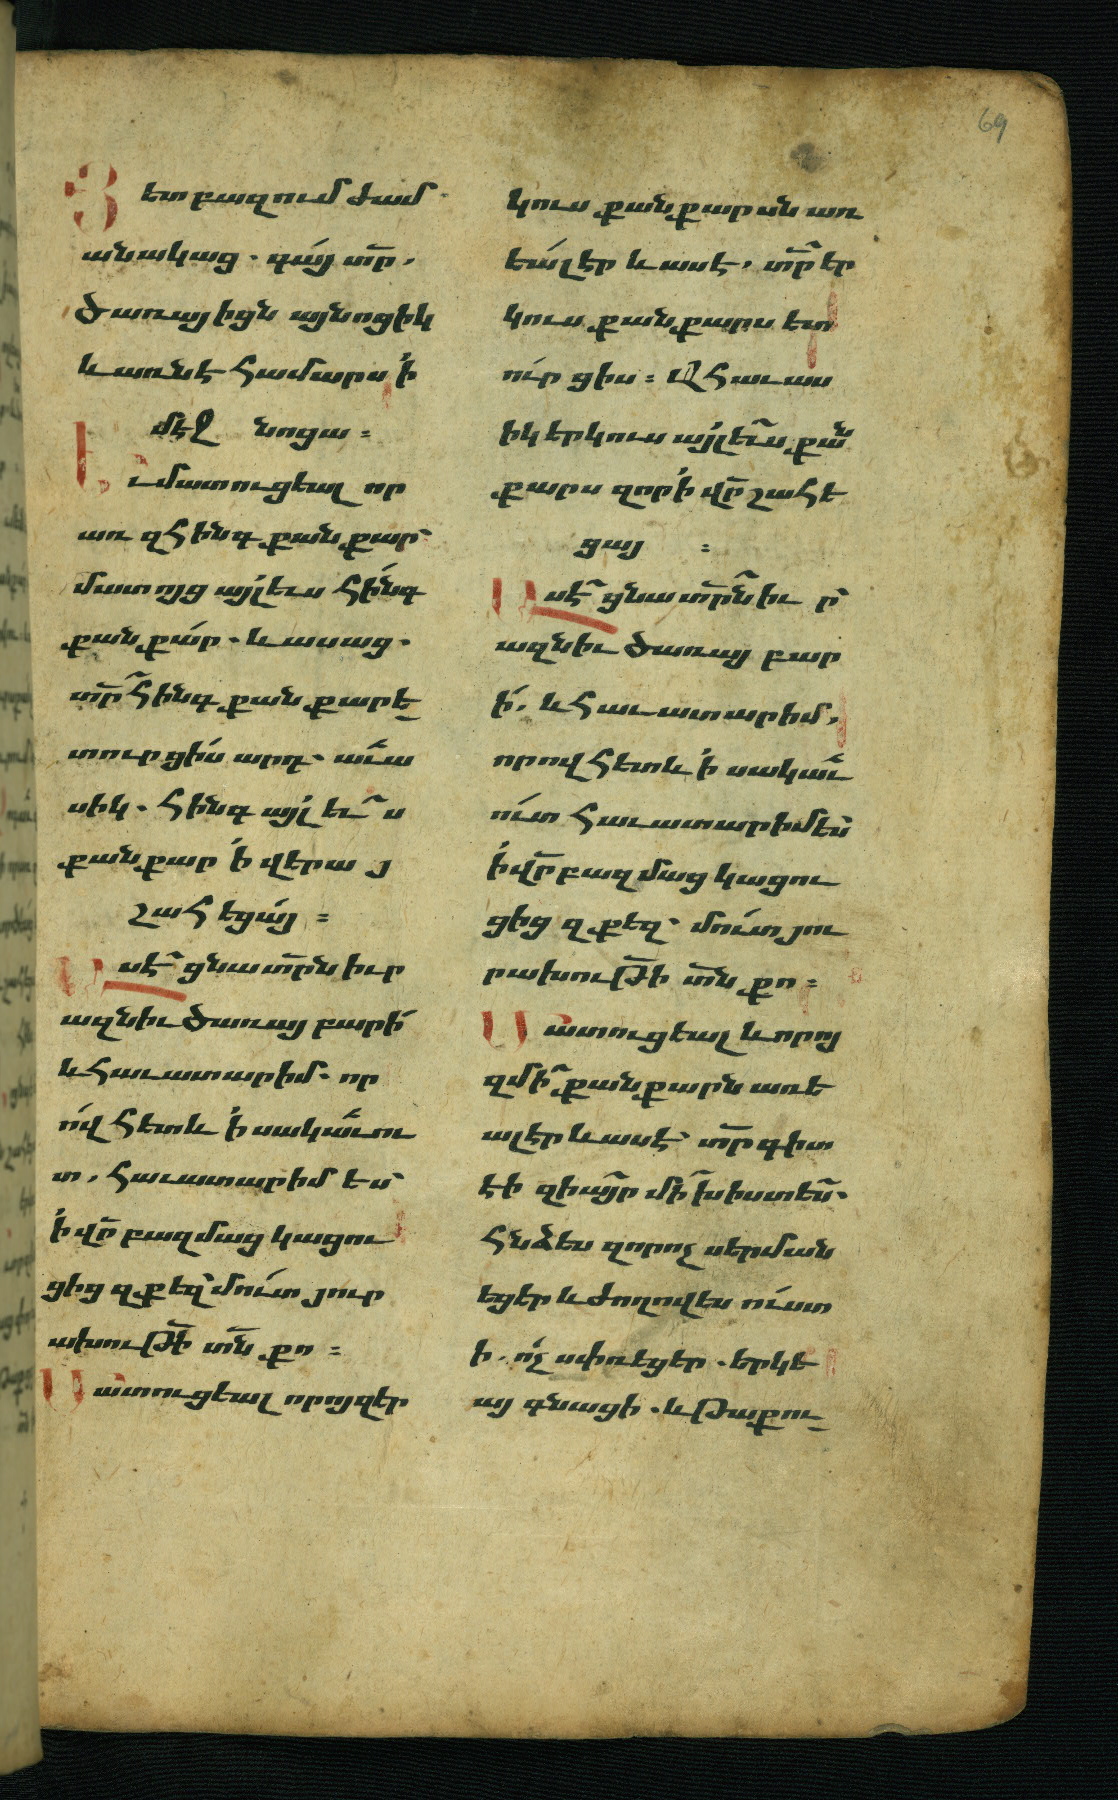 69
Յետ բազում ժամ
անակաց. գայ տր̃,
ծառայիցն այնոցիկ
և առնէ համարս ՛ի
մէջ նոցա։
Եւ մատուցեալ որ
առ զհինգ քանքար՝
մատոյց այլ ևս հինգ
քանքար. և ասաց.
տր̃ հինգ քանքարե_
տուր ցիս արդ. աւա
սիկ. հինգ այլ եւս
քանքար ՛ի վերայ
շահեցայ։
Ասէ ցնա տր̃ն իւր
ազնիւ ծառայ բարի
և հաւատարիմ. որ
ովհետև ՛ի սակաւու
տ, հաւատարիմ ես՝
՛ի վր̃ բազմաց կացու
ցից զքեզ՝ մուտ յուր
ախութի̃ տն̃ քո։
Մատուցեալ որոյ զեր
կուս քանքարսն առ
եալ էր և ասէ, տր̃ եր
կուս քանքարս ետ
ուր ցիս։ Ահաւաս
իկ երկուս այլ եւս քան
քարս զոր ՛ի վր̃ շահե
ցայ։
Ասէ ցնա տր̃ն իւր՝
ազնիւ ծառայ բար
ի, և հաւատարիմ,
որովհետև ՛ի սակաւ
ուտ հաւատարիմ ես՝
՛ի վր̃ բազմաց կացու
ցից զքեզ՝ մուտ յու
րախութի̃ տն̃ քո։
Մատուցեալ և որոյ
զմի քանքարն առե
ալ էր և ասէ՝ տր̃ գիտ
էի զի այր մի խիստ ես՝.
հնձես զոր ոչ սերման
եցեր և ժողովես ուստ
ի. ոչ սփռեցեր. երկե
այ գնացի. և թաքու_